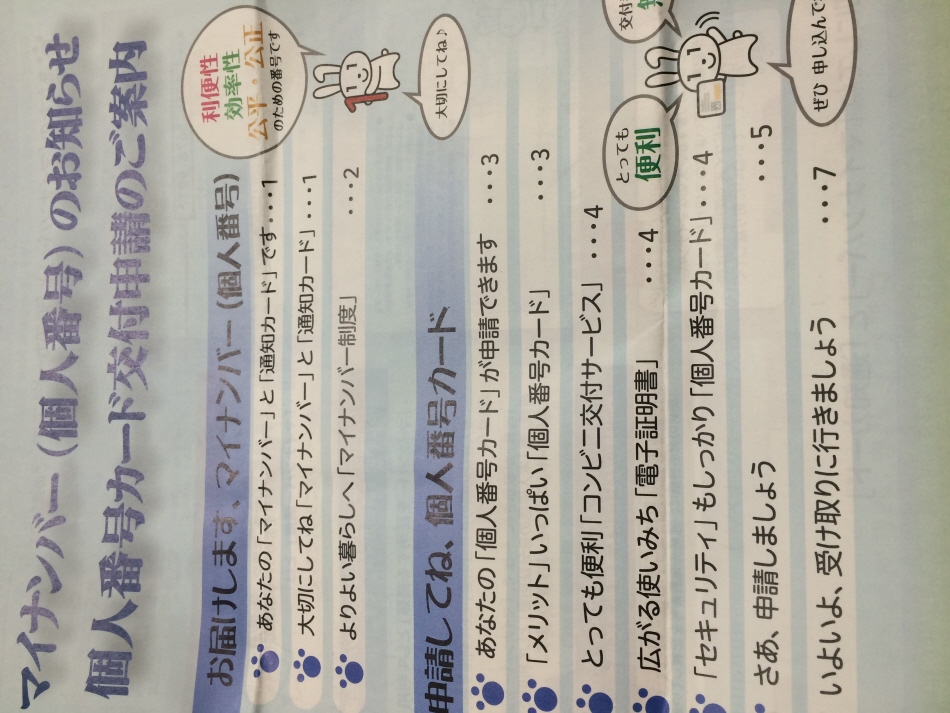 マイナンバー（個人番号）のお知らせ
個人番号カード交付申請のご案内
利便性
効率性
公平・公正
のための番号です
お届けします、マイナンバー（個人番号）
あなたの「マイナンバー」と「通知カード」です・・・1
大切にしてね「マイナンバー」と「通知カード」・・・1
よりよい暮らしへ「マイナンバー制度」 ・・・2
大切にしてね♪
申請してね、個人番号カード
あなたの「個人番号カード」が申請できます ・・・3
「メリット」いっぱい「個人番号カード」 ・・・3
とっても便利「コンビニ交付サービス」 ・・・4
広がる使いみち「電子証明書」 ・・・4
「セキュリティ」もしっかり「個人番号カード」・・・4
さあ、申請しましょう ・・・5
いよいよ、受け取りに行きましょう ・・・7
とっても
便利
交付
ぜひ 申し込んで